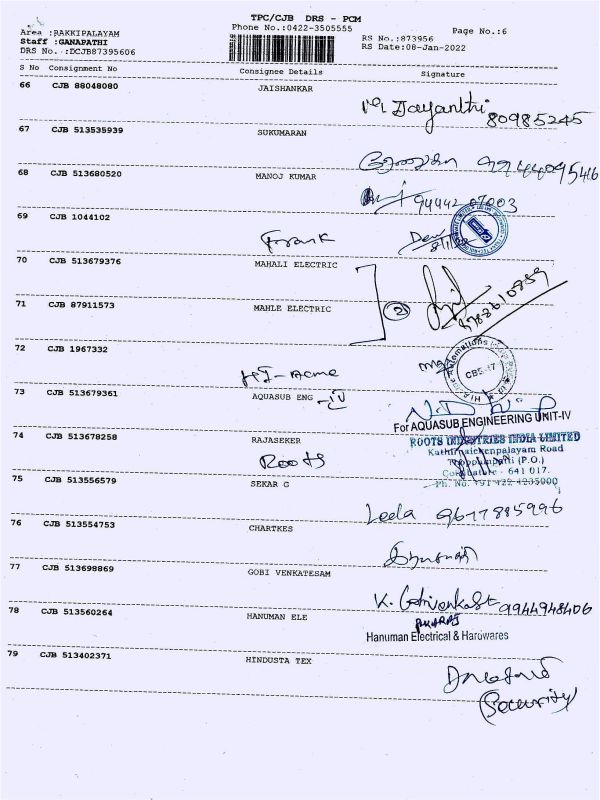 TPC/CJB DRS - PCM
Phone No.:0422-3505555
Page No.:6
Area :RAKKIPALAYAM
Staff :GANAPATHI
DRS No.:DCJB87395606
RS No.:873956
RS Date:08-Jan-2022
S No Consignment No Consignee Details Signature
66 CJB 88048080 JAISHANKAR
Jayanthi 80985245
67 CJB 513535939 SUKUMARAN
68 CJB 513680520 MANOJ KUMAR
94442 07003
69 CJB 1044102
Frank
70 CJB 513679376 MAHALI ELECTRIC
71 CJB 87911573 MAHLE ELECTRIC
2
72 CJB 1967332
HI-Acme
CBE-17
73 CJB 513679361 AQUASUB ENG -IV
For AQUASUB ENGINEERING UNIT-IV
74 CJB 513678258 RAJASEKER
Roots
ROOTS INDUSTRIES INDIA LIMITED
Kathirnaickenpalayam Road
Thoppampatti (P.O.)
Coimbatore - 641 017.
Ph. No. +91 422 4235000
75 CJB 513556579 SEKAR G
Leela 9677885996
76 CJB 513554753 CHARTKES
77 CJB 513698869 GOBI VENKATESAM
K. Gobivenkat 9944948406
78 CJB 513560264 HANUMAN ELE
Hanuman Electrical & Hardwares
79 CJB 513402371 HINDUSTA TEX
(Security)